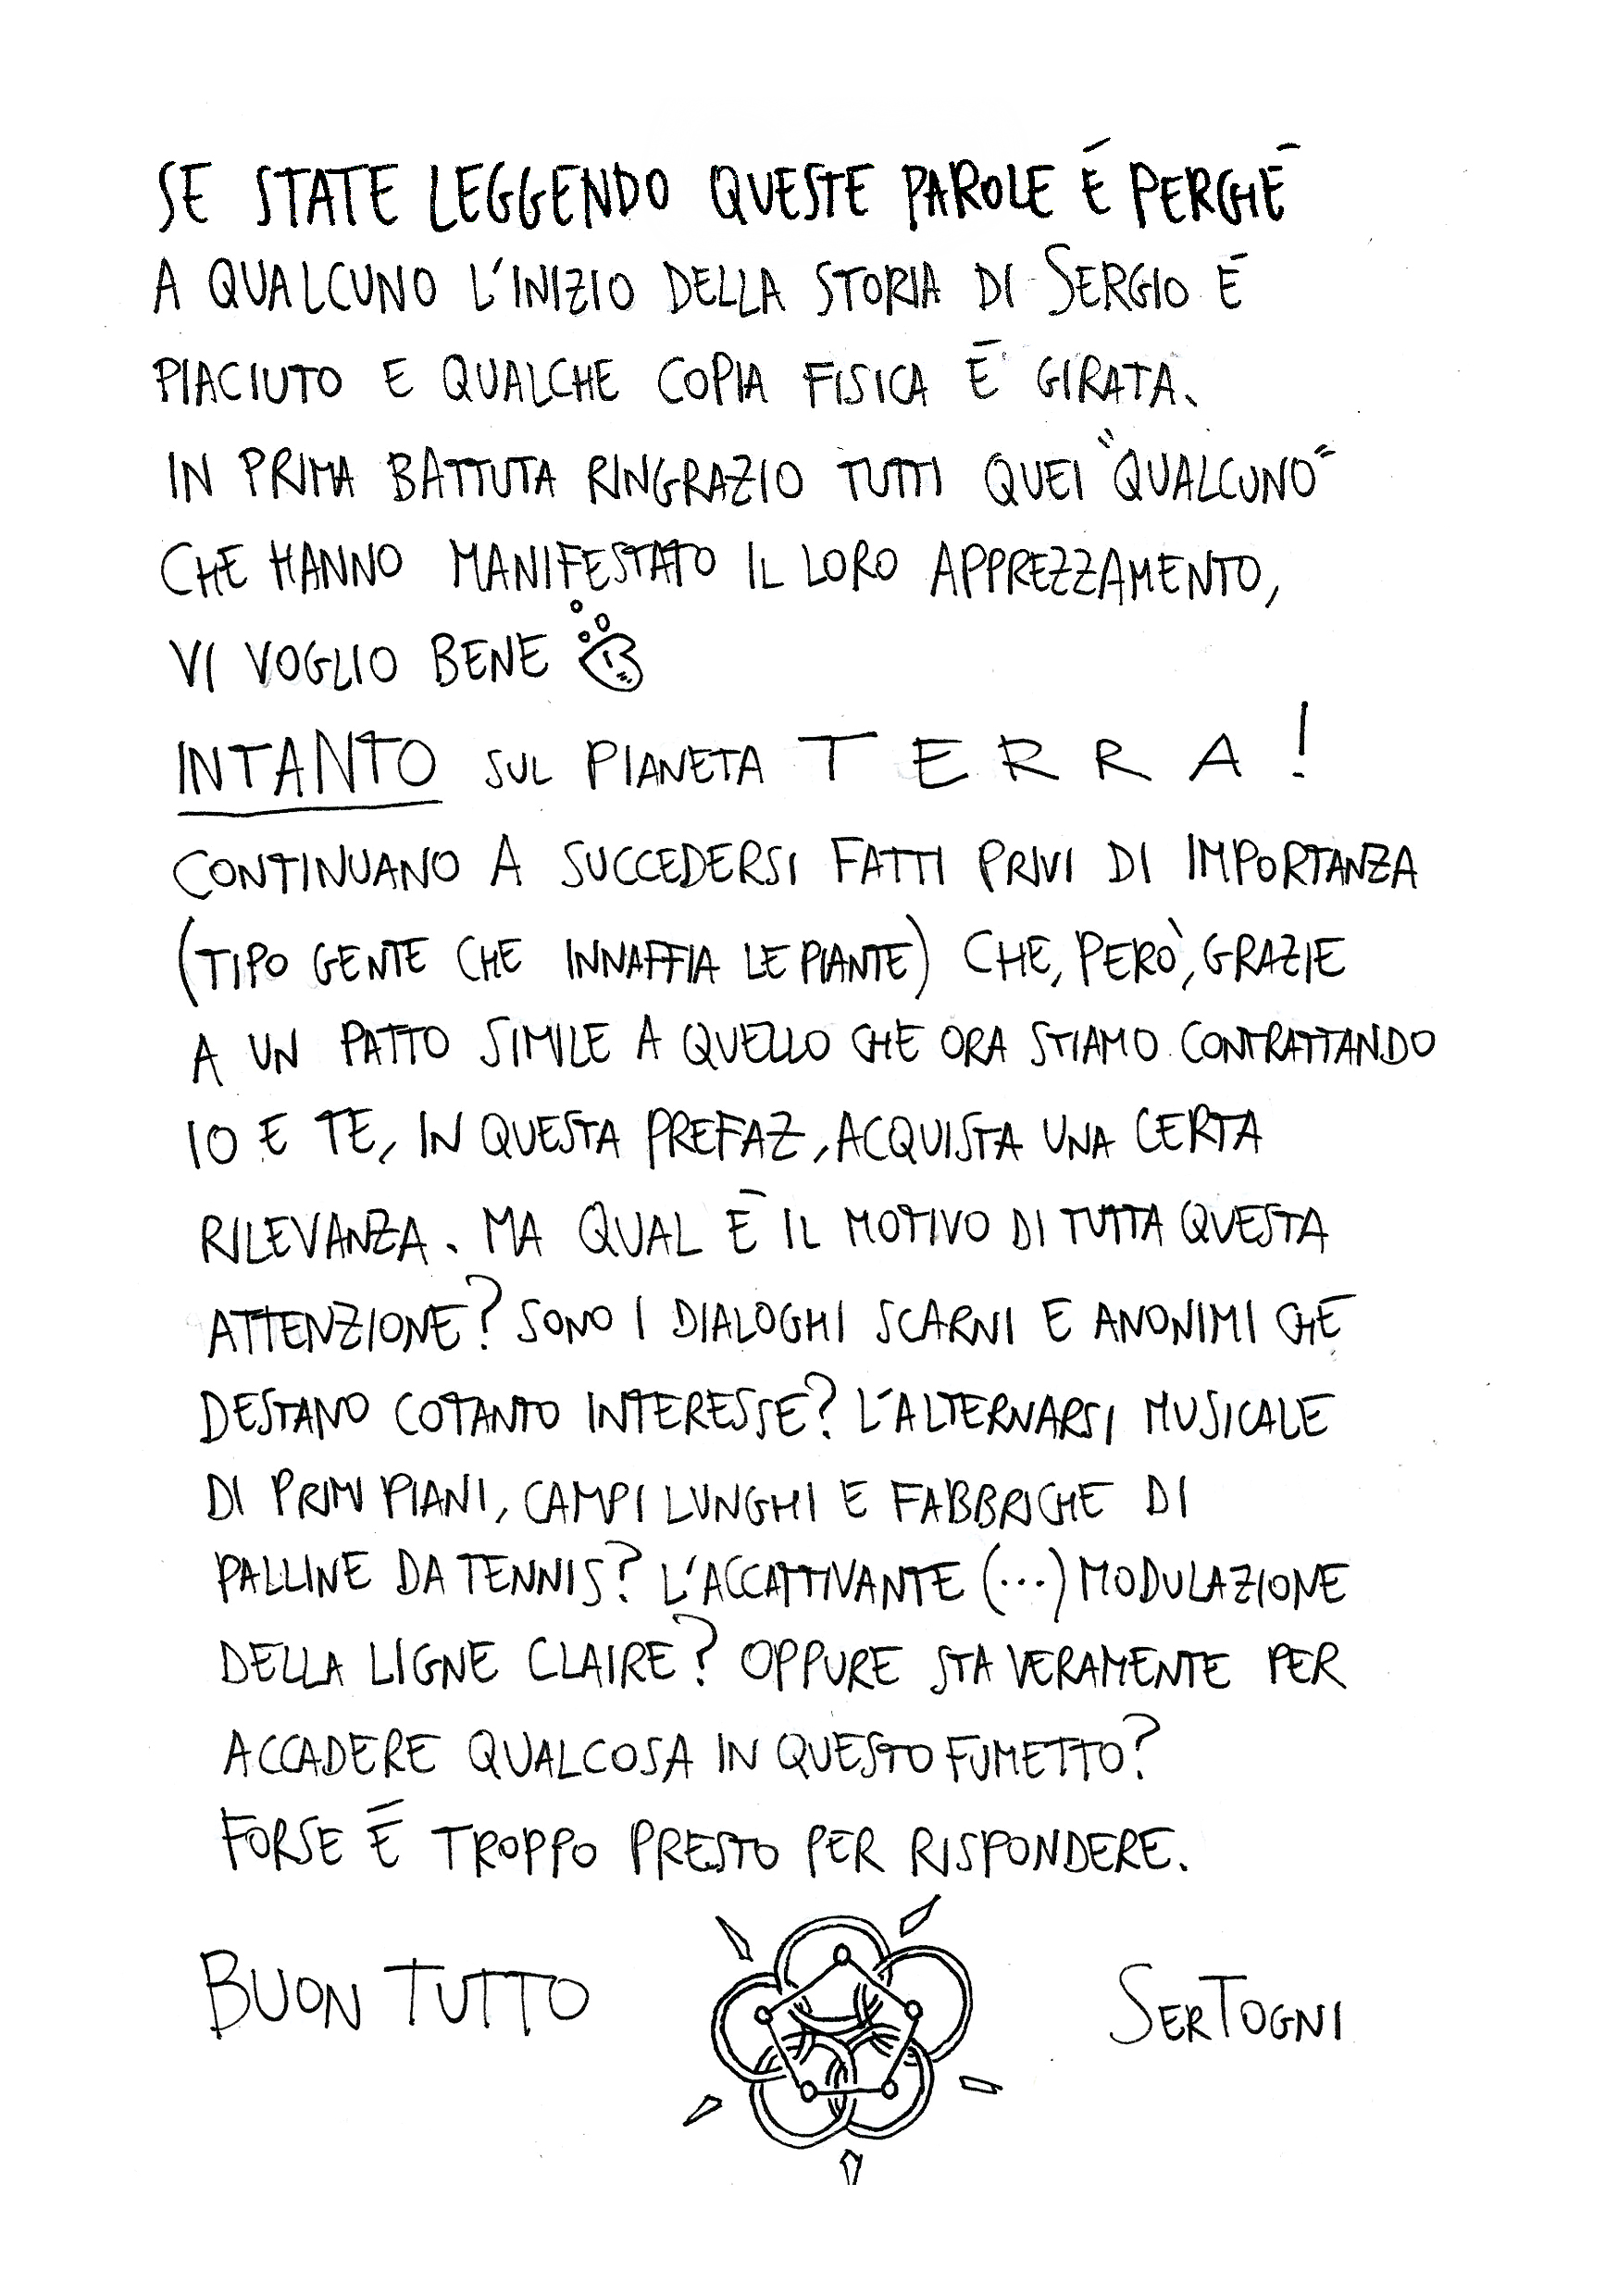 SE STATE LEGGENDO QUESTE PAROLE É PERCHÉ
A QUALCUNO L'INIZIO DELLA STORIA DI SERGIO É
PIACIUTO E QUALCHE COPIA FISICA É GIRATA.
IN PRIMA BATTUTA RINGRAZIO TUTTI QUEI "QUALCUNO"
CHE HANNO MANIFESTATO IL LORO APPREZZAMENTO,
VI VOGLIO BENE
INTANTO SUL PIANETA TERRA!
CONTINUANO A SUCCEDERSI FATTI PRIVI DI IMPORTANZA
(TIPO GENTE CHE INNAFFIA LE PIANTE) CHE, PERÒ, GRAZIE
A UN PATTO SIMILE A QUELLO CHE ORA STIAMO CONTRATTANDO
IO E TE, IN QUESTA PREFAZ, ACQUISTA UNA CERTA
RILEVANZA. MA QUAL É IL MOTIVO DI TUTTA QUESTA
ATTENZIONE? SONO I DIALOGHI SCARNI E ANONIMI CHE
DESTANO COTANTO INTERESSE? L'ALTERNARSI MUSICALE
DI PRIMI PIANI, CAMPI LUNGHI E FABBRICHE DI
PALLINE DA TENNIS? L'ACCATTIVANTE (...) MODULAZIONE
DELLA LIGNE CLAIRE? OPPURE STA VERAMENTE PER
ACCADERE QUALCOSA IN QUESTO FUMETTO?
FORSE É TROPPO PRESTO PER RISPONDERE.
BUON TUTTO SERTOGNI